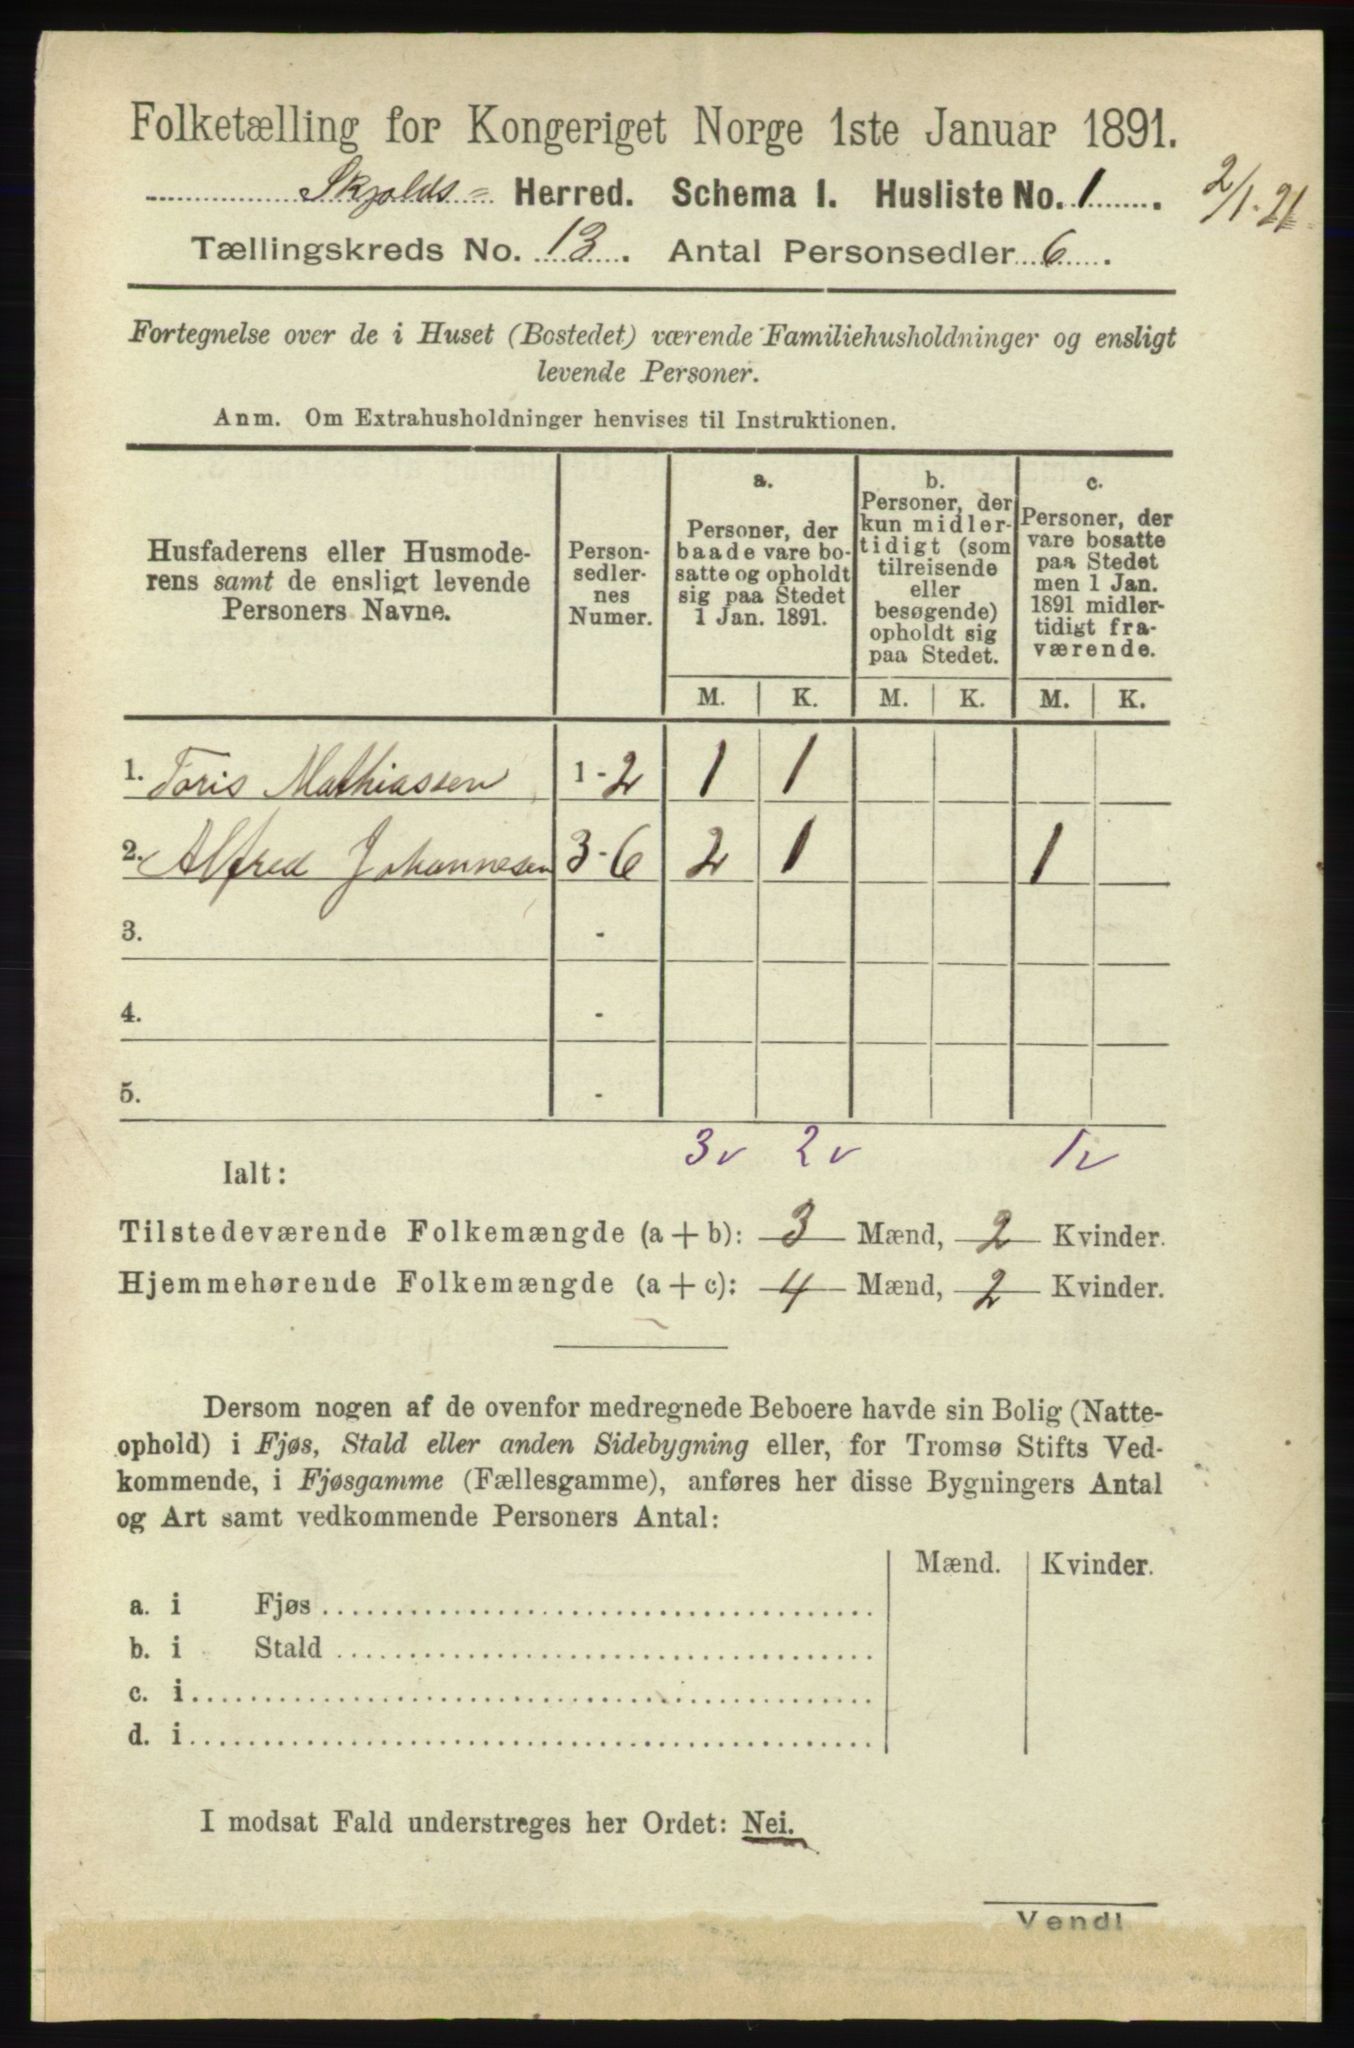 Folketælling for Kongeriget Norge 1ste Januar 1891.
Skjolds= Herred. Schema I. Husliste No. 1.
2/1. 21
Tællingskreds No. 13. Antal Personsedler 6.
Fortegnelse over de i Huset (Bostedet) værende Familiehusholdninger og ensligt
levende Personer.
Anm. Om Extrahusholdninger henvises til Instruktionen.
Husfaderens eller Husmode-
rens samt de ensligt levende
Personers Navne.
Person-
sedler-
nes
Numer.
a.
Personer, der
baade vare bo-
satte og opholdt
sig paa Stedet
1 Jan. 1891.
b.
Personer, der
kun midler-
tidigt (som
tilreisende
eller
besøgende)
opholdt sig
paa Stedet.
c.
Personer, der
vare bosatte
paa Stedet
men 1 Jan.
1891 midler-
tidigt fra-
værende.
M. K. M. K. M. K.
1. Toris Mathiassen 1-2 1 1
2. Alfred Johannesen 3-6 2 1 1
3. -
4. -
5. -
3v 2v 1v
Ialt:
Tilstedeværende Folkemængde (a + b): 3 Mænd, 2 Kvinder.
Hjemmehørende Folkemængde (a + c): 4 Mænd, 2 Kvinder.
Dersom nogen af de ovenfor medregnede Beboere havde sin Bolig (Natte-
ophold) i Fjøs, Stald eller anden Sidebygning eller, for Tromsø Stifts Ved-
kommende, i Fjøsgamme (Fællesgamme), anføres her disse Bygningers Antal
og Art samt vedkommende Personers Antal:
Mænd. Kvinder.
a. i Fjøs
b. i Stald
c. i
d. i
I modsat Fald understreges her Ordet: Nei.
Vend!